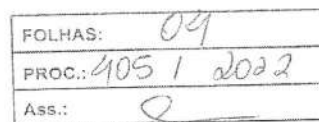 FOLHAS: 04
PROC.: 405 / 2022
Ass.: